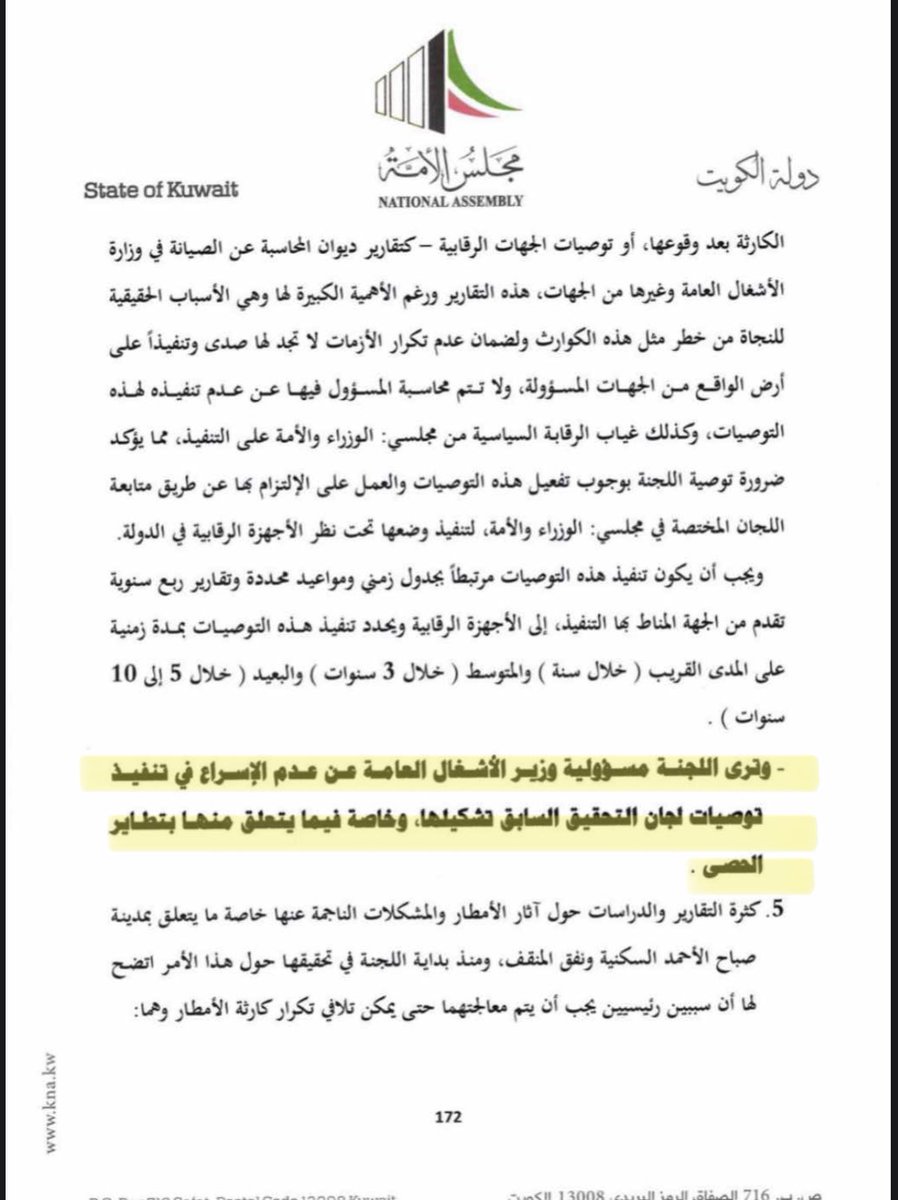 مجلس الأمة
NATIONAL ASSEMBLY
State of Kuwait
دولة الكويت
الكارثة بعد وقوعها، أو توصيات الجهات الرقابية – كتقارير ديوان المحاسبة عن الصيانة في وزارة
الأشغال العامة وغيرها من الجهات، هذه التقارير ورغم الأهمية الكبيرة لها وهي الأسباب الحقيقية
للنجاة من خطر مثل هذه الكوارث ولضمان عدم تكرار الأزمات لا تجد لها صدى وتنفيذاً على
أرض الواقع من الجهات المسؤولة، ولا تتم محاسبة المسؤول فيها عن عدم تنفيذه لهذه
التوصيات، وكذلك غياب الرقابة السياسية من مجلسي: الوزراء والأمة على التنفيذ، مما يؤكد
ضرورة توصية اللجنة بوجوب تفعيل هذه التوصيات والعمل على الإلتزام بها عن طريق متابعة
اللجان المختصة في مجلسي: الوزراء والأمة، لتنفيذ وضعها تحت نظر الأجهزة الرقابية في الدولة.
ويجب أن يكون تنفيذ هذه التوصيات مرتبطاً بجدول زمني ومواعيد محددة وتقارير ربع سنوية
تقدم من الجهة المناط بها التنفيذ، إلى الأجهزة الرقابية ويحدد تنفيذ هذه التوصيات بمدة زمنية
على المدى القريب ( خلال سنة ) والمتوسط ( خلال 3 سنوات ) والبعيد ( خلال 5 إلى 10
سنوات ) .
- وترى اللجنة مسؤولية وزير الأشغال العامة عن عدم الإسراع في تنفيذ
توصيات لجان التحقيق السابق تشكيلها، وخاصة فيما يتعلق منها بتطاير
الحصى .
5. كثرة التقارير والدراسات حول آثار الأمطار والمشكلات الناجمة عنها خاصة ما يتعلق بمدينة
صباح الأحمد السكنية ونفق المنقف، ومنذ بداية اللجنة في تحقيقها حول هذا الأمر اتضح
لها أن سببين رئيسيين يجب أن يتم معالجتهما حتى يمكن تلافي تكرار كارثة الأمطار وهما:
www.kna.kw
172
ص.ب. 716 الصفاة، الرمز البريدي 13008 الكويت